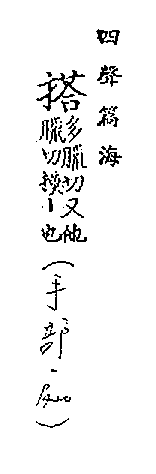 四聲篇海
搭多臘切又他臘切丨也(手部·)